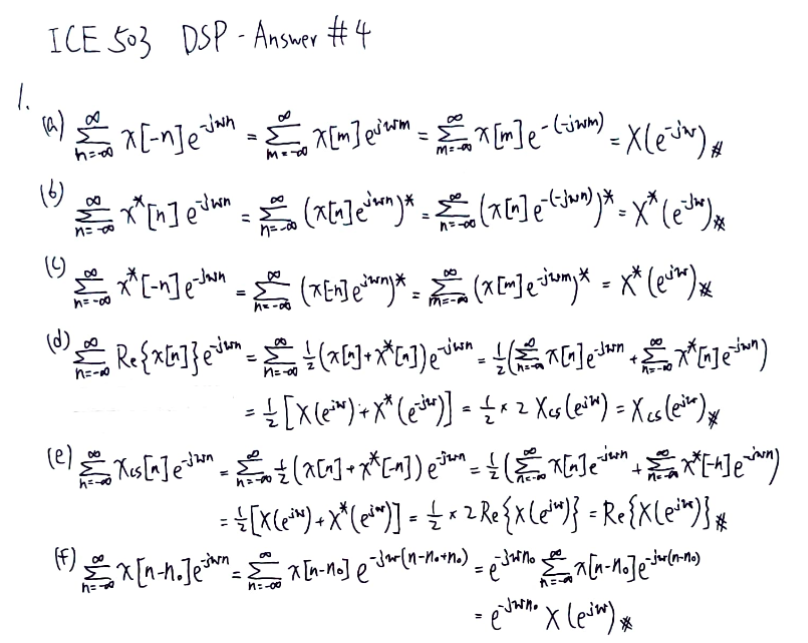 ICE 503 DSP - Answer #4
1.
(a) ∑_{n=-∞}^{∞} x[-n]e^{-jwn} = ∑_{m=-∞}^{∞} x[m]e^{jwm} = ∑_{m=-∞}^{∞} x[m]e^{-(-jwm)} = X(e^{-jw})#
(b) ∑_{n=-∞}^{∞} x*[n]e^{-jwn} = ∑_{n=-∞}^{∞} (x[n]e^{jwn})* = ∑_{n=-∞}^{∞} (x[n]e^{-(-jwn)})* = X*(e^{-jw})#
(c) ∑_{n=-∞}^{∞} x*[-n]e^{-jwn} = ∑_{n=-∞}^{∞} (x[-n]e^{jwn})* = ∑_{m=-∞}^{∞} (x[m]e^{-jwm})* = X*(e^{jw})#
(d) ∑_{n=-∞}^{∞} Re{x[n]}e^{-jwn} = ∑_{n=-∞}^{∞} ½(x[n]+x*[n])e^{-jwn} = ½(∑_{n=-∞}^{∞} x[n]e^{-jwn} + ∑_{n=-∞}^{∞} x*[n]e^{-jwn})
= ½[X(e^{jw})+X*(e^{-jw})] = ½ × 2 X_{cs}(e^{jw}) = X_{cs}(e^{jw})#
(e) ∑_{n=-∞}^{∞} x_{cs}[n]e^{-jwn} = ∑_{n=-∞}^{∞} ½(x[n]+x*[-n])e^{-jwn} = ½(∑_{n=-∞}^{∞} x[n]e^{-jwn} + ∑_{n=-∞}^{∞} x*[-n]e^{-jwn})
= ½[X(e^{jw})+X*(e^{jw})] = ½ × 2 Re{X(e^{jw})} = Re{X(e^{jw})}#
(f) ∑_{n=-∞}^{∞} x[n-n₀]e^{-jwn} = ∑_{n=-∞}^{∞} x[n-n₀] e^{-jw(n-n₀+n₀)} = e^{-jwn₀} ∑_{n=-∞}^{∞} x[n-n₀]e^{-jw(n-n₀)}
= e^{-jwn₀} X(e^{jw})#